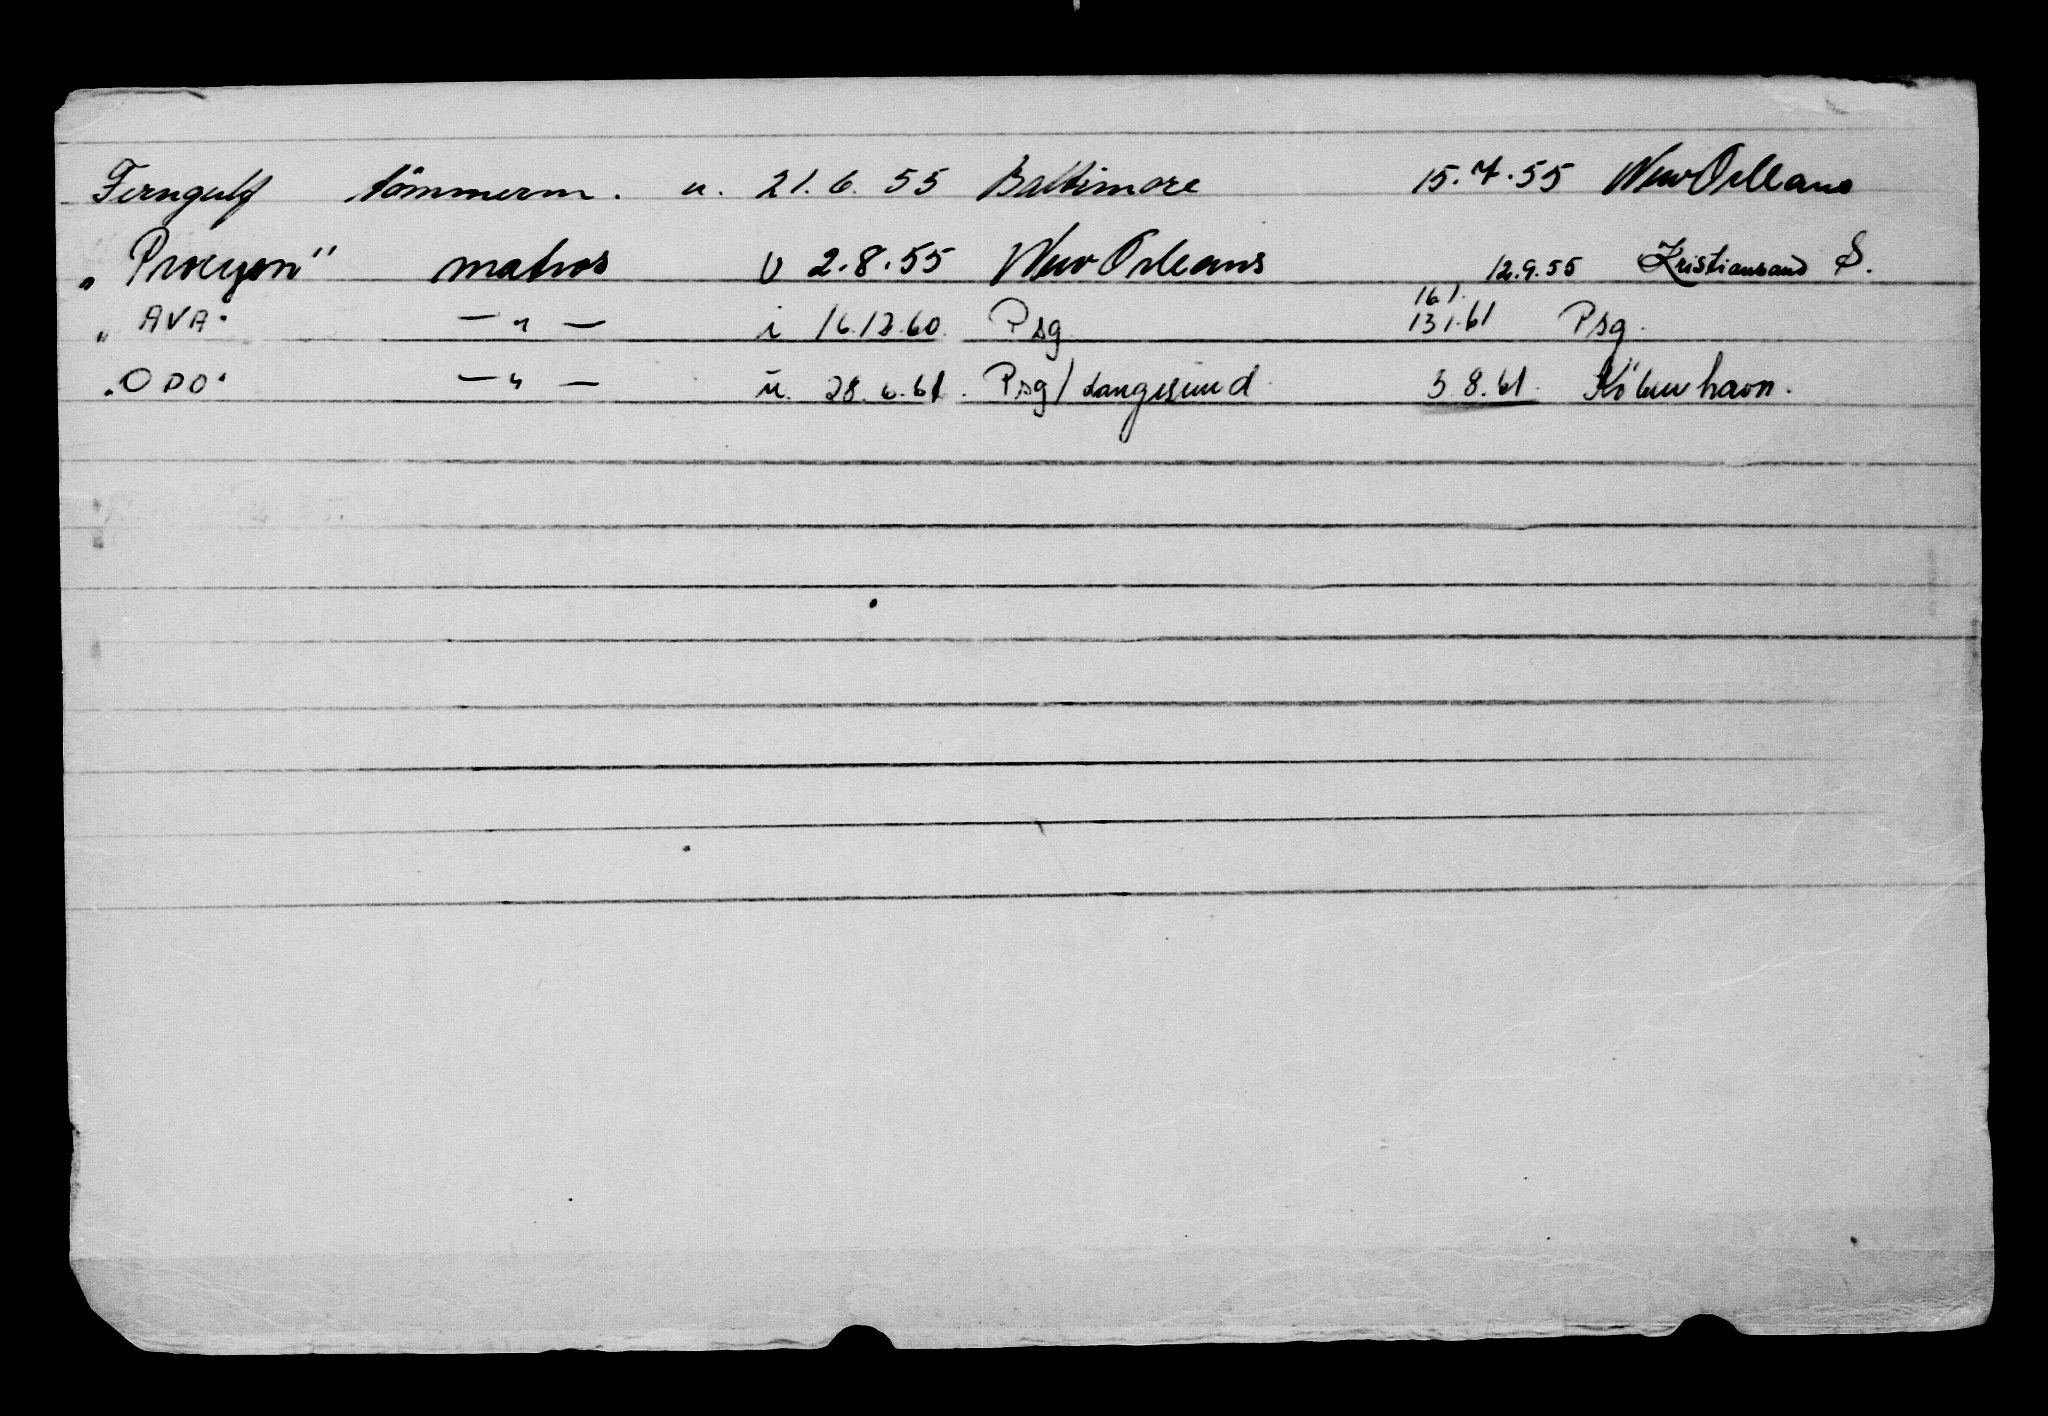 Ferngulf tömmerm. u. 21.6.55 Baltimore 15.7.55 New Orleans
„Procyon" matros U 2.8.55 New Orleans 12.9.55 Kristiansand S.
16.1.
„AVA" — " — i 16.12.60. Psg 13 1.61 Psg.
„ODO" — " — u. 28.6.61. Psg/Langesund 3 8.61. Köbenhavn.